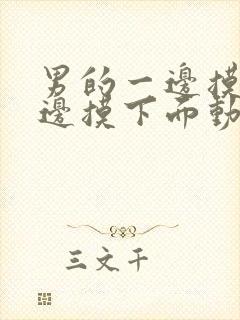 男的一邊摸
邊摸下而動
三文千